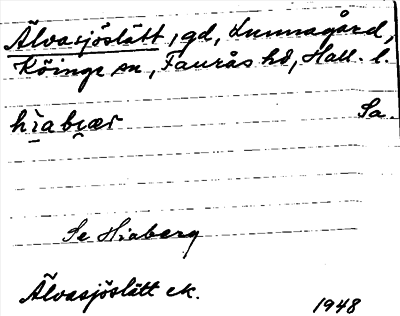 Älvasjöslätt, gd, Lunnagård,
Köinge sn, Faurås hd, Hall. l.
hiabær Sa.
Se Hiaberg
Älvasjöslätt ek.
1948